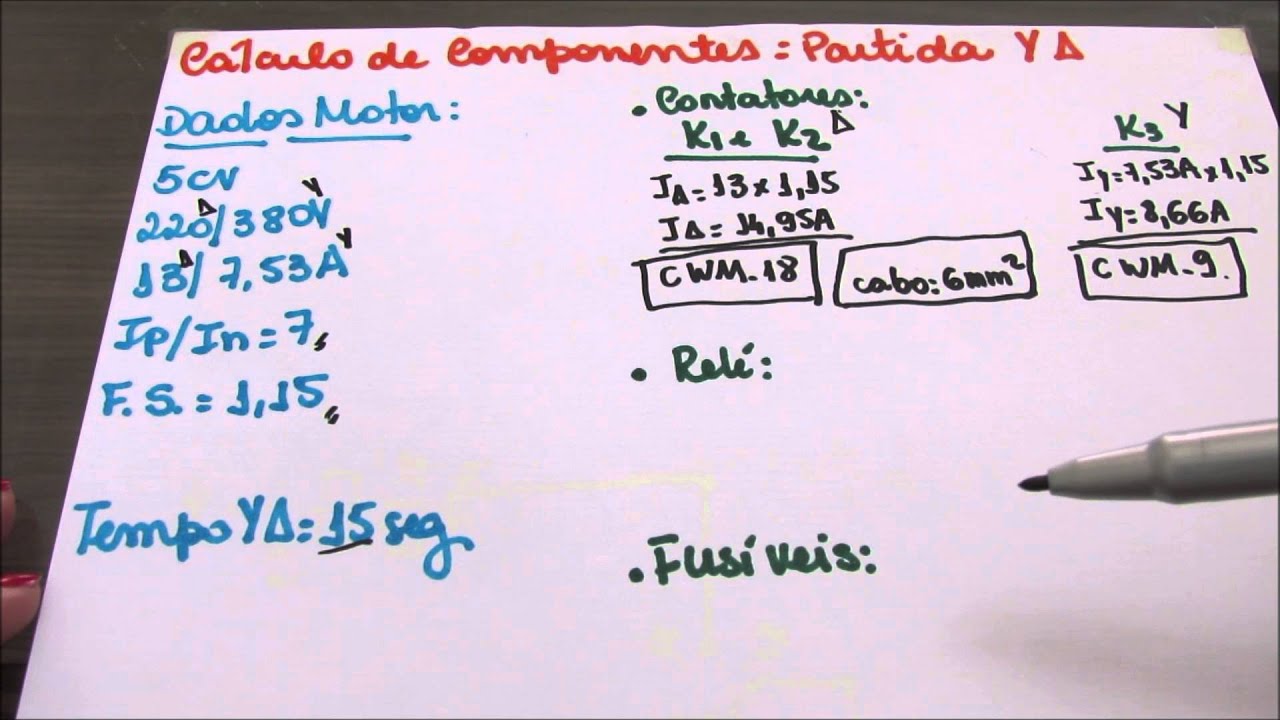 Cálculo de Componentes = Partida Y Δ
Dados Motor:
5CV
220/380V
Δ Y
13/7,53A
Δ Y
Ip/In = 7,
F.S. = 1,15,
Tempo YΔ = 15 seg
• Contatores:
K1 e K2 Δ
IΔ = 13 x 1,15
IΔ = 14,95A
CWM-18
cabo: 6mm²
K3 Y
IY = 7,53A x 1,15
IY = 8,66A
CWM-9.
• Relé:
• Fusíveis: